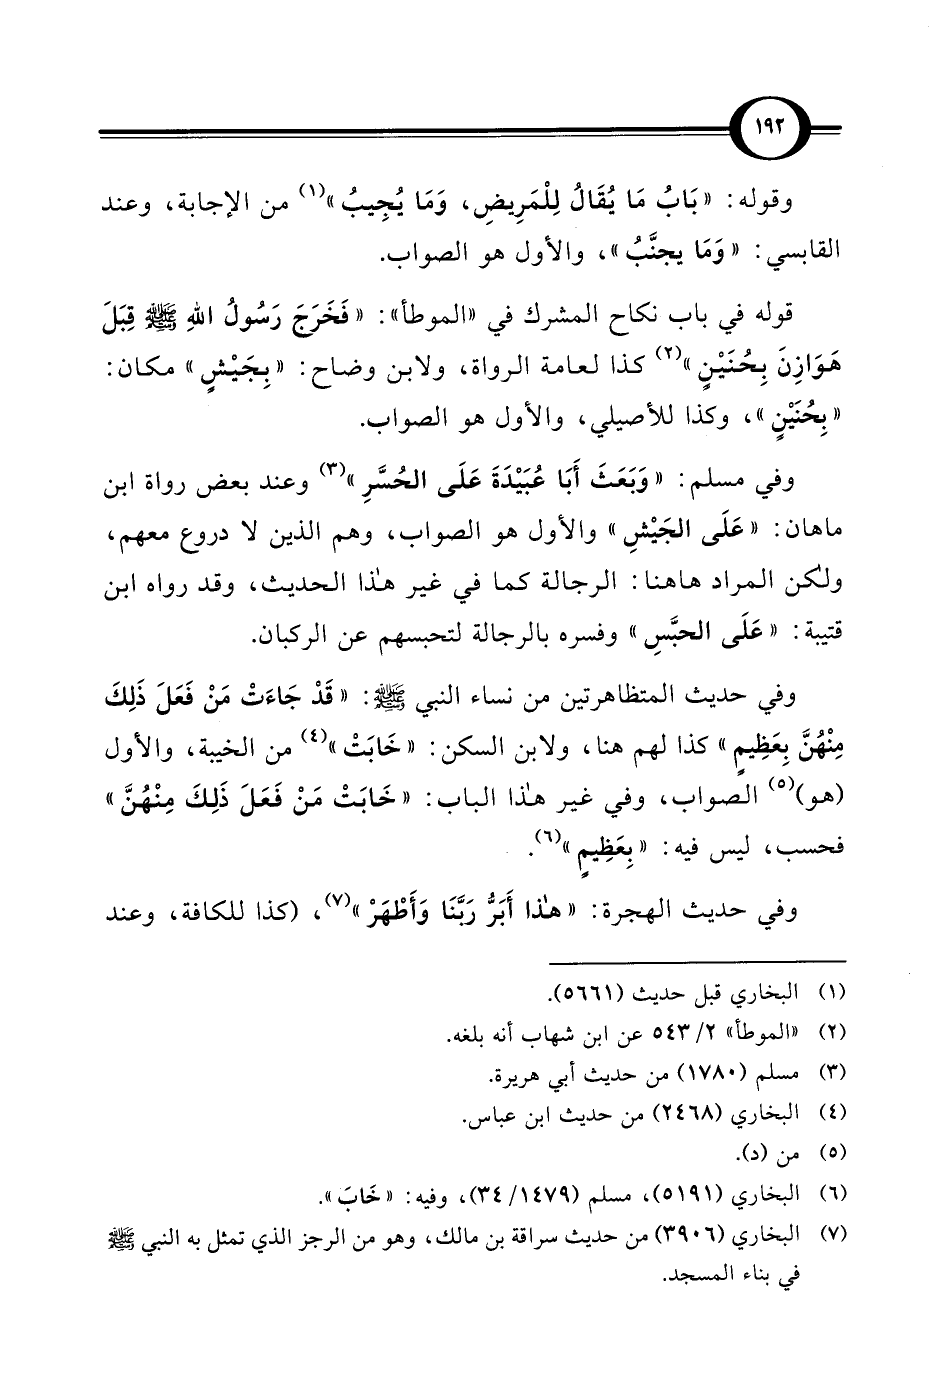 ١٩٢
وقوله: «بَابُ مَا يُقَالُ لِلْمَرِيضِ، وَمَا يُجِيبُ»(١) من الإجابة، وعند
القابسي: «وَمَا يجنَّبُ»، والأول هو الصواب.
قوله في باب نكاح المشرك في «الموطأ»: «فَخَرَجَ رَسُولُ اللهِ ﷺ قِبَلَ
هَوَازِنَ بِحُنَيْنٍ»(٢) كذا لعامة الرواة، ولابن وضاح: «بِجَيْشٍ» مكان:
«بِحُنَيْنٍ»، وكذا للأصيلي، والأول هو الصواب.
وفي مسلم: «وَبَعَثَ أَبَا عُبَيْدَةَ عَلَى الحُسَّرِ»(٣) وعند بعض رواة ابن
ماهان: «عَلَى الجَيْشِ» والأول هو الصواب، وهم الذين لا دروع معهم،
ولكن المراد هاهنا: الرجالة كما في غير هذا الحديث، وقد رواه ابن
قتيبة: «عَلَى الحبَّسِ» وفسره بالرجالة لتحبسهم عن الركبان.
وفي حديث المتظاهرتين من نساء النبي ﷺ: «قَدْ جَاءَتْ مَنْ فَعَلَ ذَلِكَ
مِنْهُنَّ بِعَظِيمٍ» كذا لهم هنا، ولابن السكن: «خَابَتْ»(٤) من الخيبة، والأول
(هو)(٥) الصواب، وفي غير هذا الباب: «خَابَتْ مَنْ فَعَلَ ذَلِكَ مِنْهُنَّ»
فحسب، ليس فيه: «بِعَظِيمٍ»(٦).
وفي حديث الهجرة: «هذا أَبَرُّ رَبَّنَا وَأَطْهَرْ»(٧)، (كذا للكافة، وعند
(١) البخاري قبل حديث (٥٦٦١).
(٢) «الموطأ» ٢/ ٥٤٣ عن ابن شهاب أنه بلغه.
(٣) مسلم (١٧٨٠) من حديث أبي هريرة.
(٤) البخاري (٢٤٦٨) من حديث ابن عباس.
(٥) من (د).
(٦) البخاري (٥١٩١)، مسلم (١٤٧٩/ ٣٤)، وفيه: «خَابَ».
(٧) البخاري (٣٩٠٦) من حديث سراقة بن مالك، وهو من الرجز الذي تمثل به النبي ﷺ
في بناء المسجد.